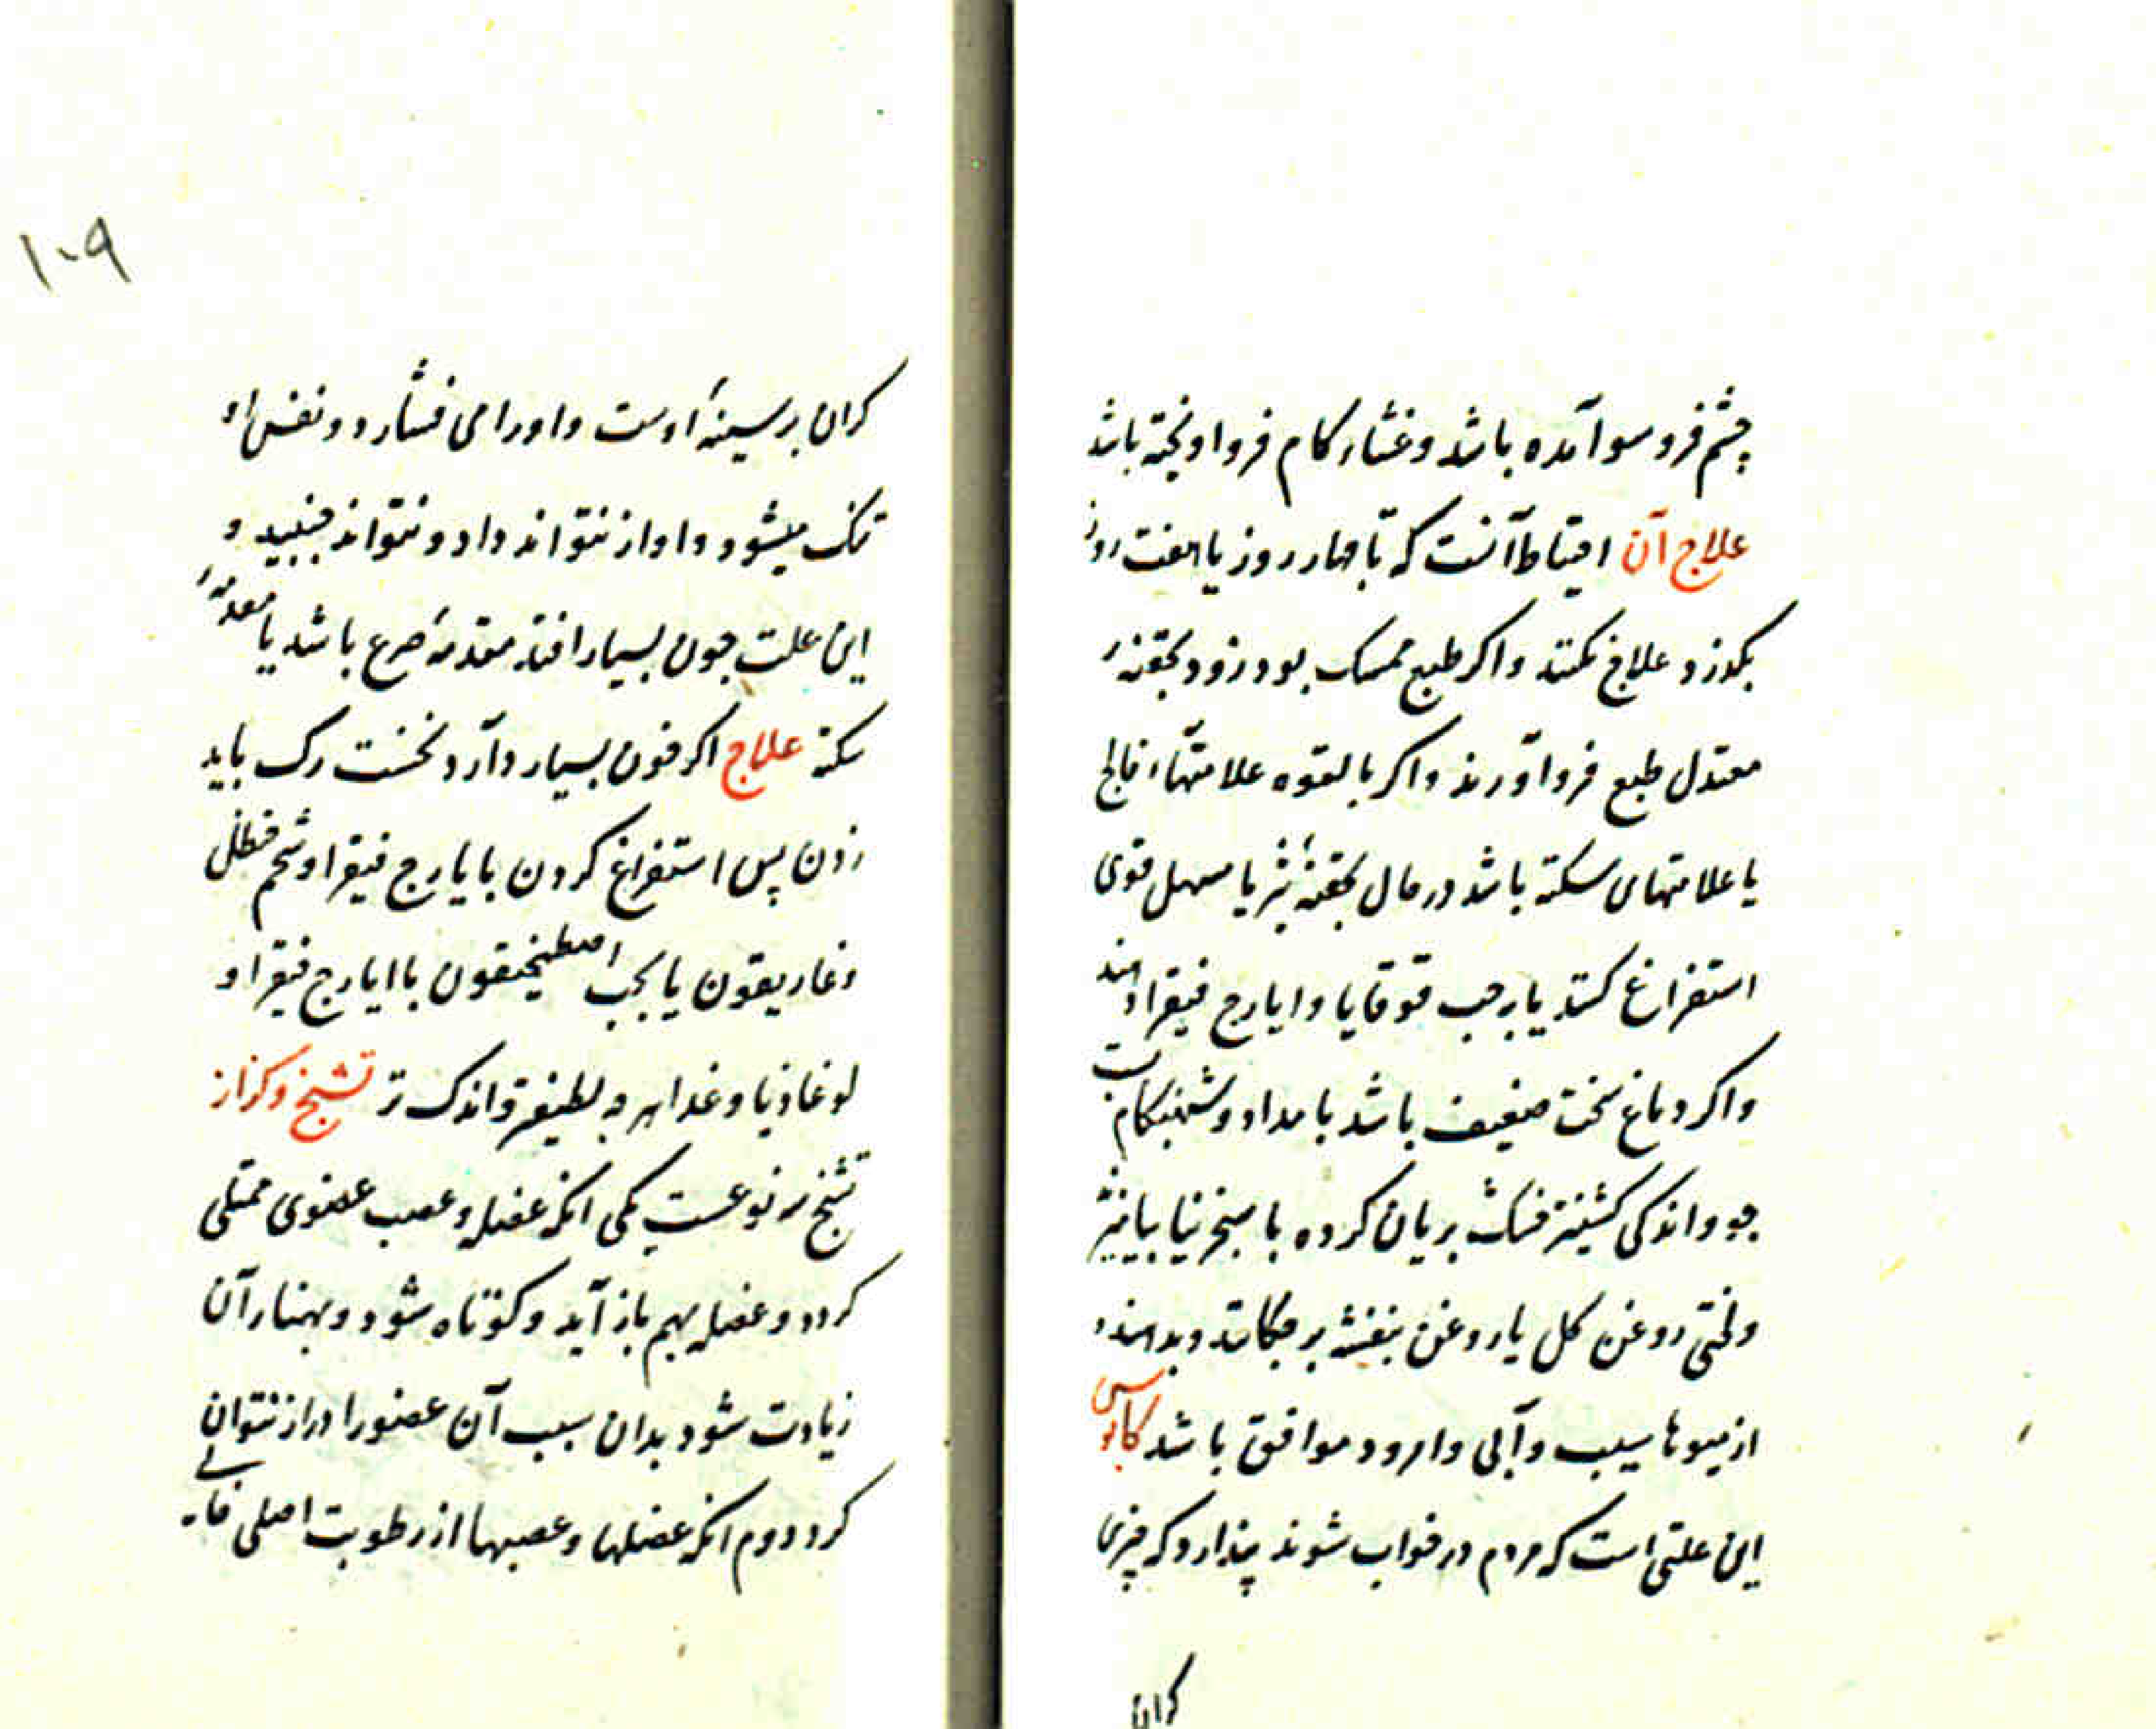 چشم فرو سوآمده باشد وغشاء کام فرو اویخته باشد
علاج آن احتیاط آنست که تا چهار روز یا هفت روز
بکذرد علاج نکنند واکر طبع ممسک بود زود بحقنهٔ
معتدل طبع فرو آورند واکر با لقوه علامتهاء فالج
یا علامتهای سکته باشد درحال بحقنهٔ تیز یا مسهل قوی
استفراغ کنند یا بر حب قوقایا وایارج فیقرا دهند
واکر دماغ سخت ضعیف باشد بامداد وشبنکام بست
جو واندکی کشنیز خشک بریان کرده با سنجرنیا بیامیزند
ولختی روغن کل یا روغن بنفشه برچکانند وبدهند و
از میوها سیب وآبی وامرود موافق باشد کابوس
این علتی است که مردم در خواب شوند پندارد که چیزی
کران
۱۰۹
کران بر سینهٔ اوست واورا می فشارد ونفس او
تنک میشود واواز نتواند داد ونتواند جنبید و
این علت چون بسیار افتد مقدمهٔ صرع باشد یا مقدمهٔ
سکته علاج اکر خون بسیار دارد نخست رک باید
زدن پس استفراغ کردن با یارج فیقرا وشحم حنظل
وغاریقون یا بحب اصطیخیقون با ایارج فیقرا و
لوغاذیا وغدا هر چه لطیفتر واندک تر تشنج وکزاز
تشنج سه نوعست یکی انکه عضله وعصب عضوی ممتلی
کردد وعضله بهم باز آید وکوتاه شود وبهنار آن
زیادت شود بدان سبب آن عضورا دراز نتوان
کرد دوم انکه عضلها وعصبها از رطوبت اصلی خالی